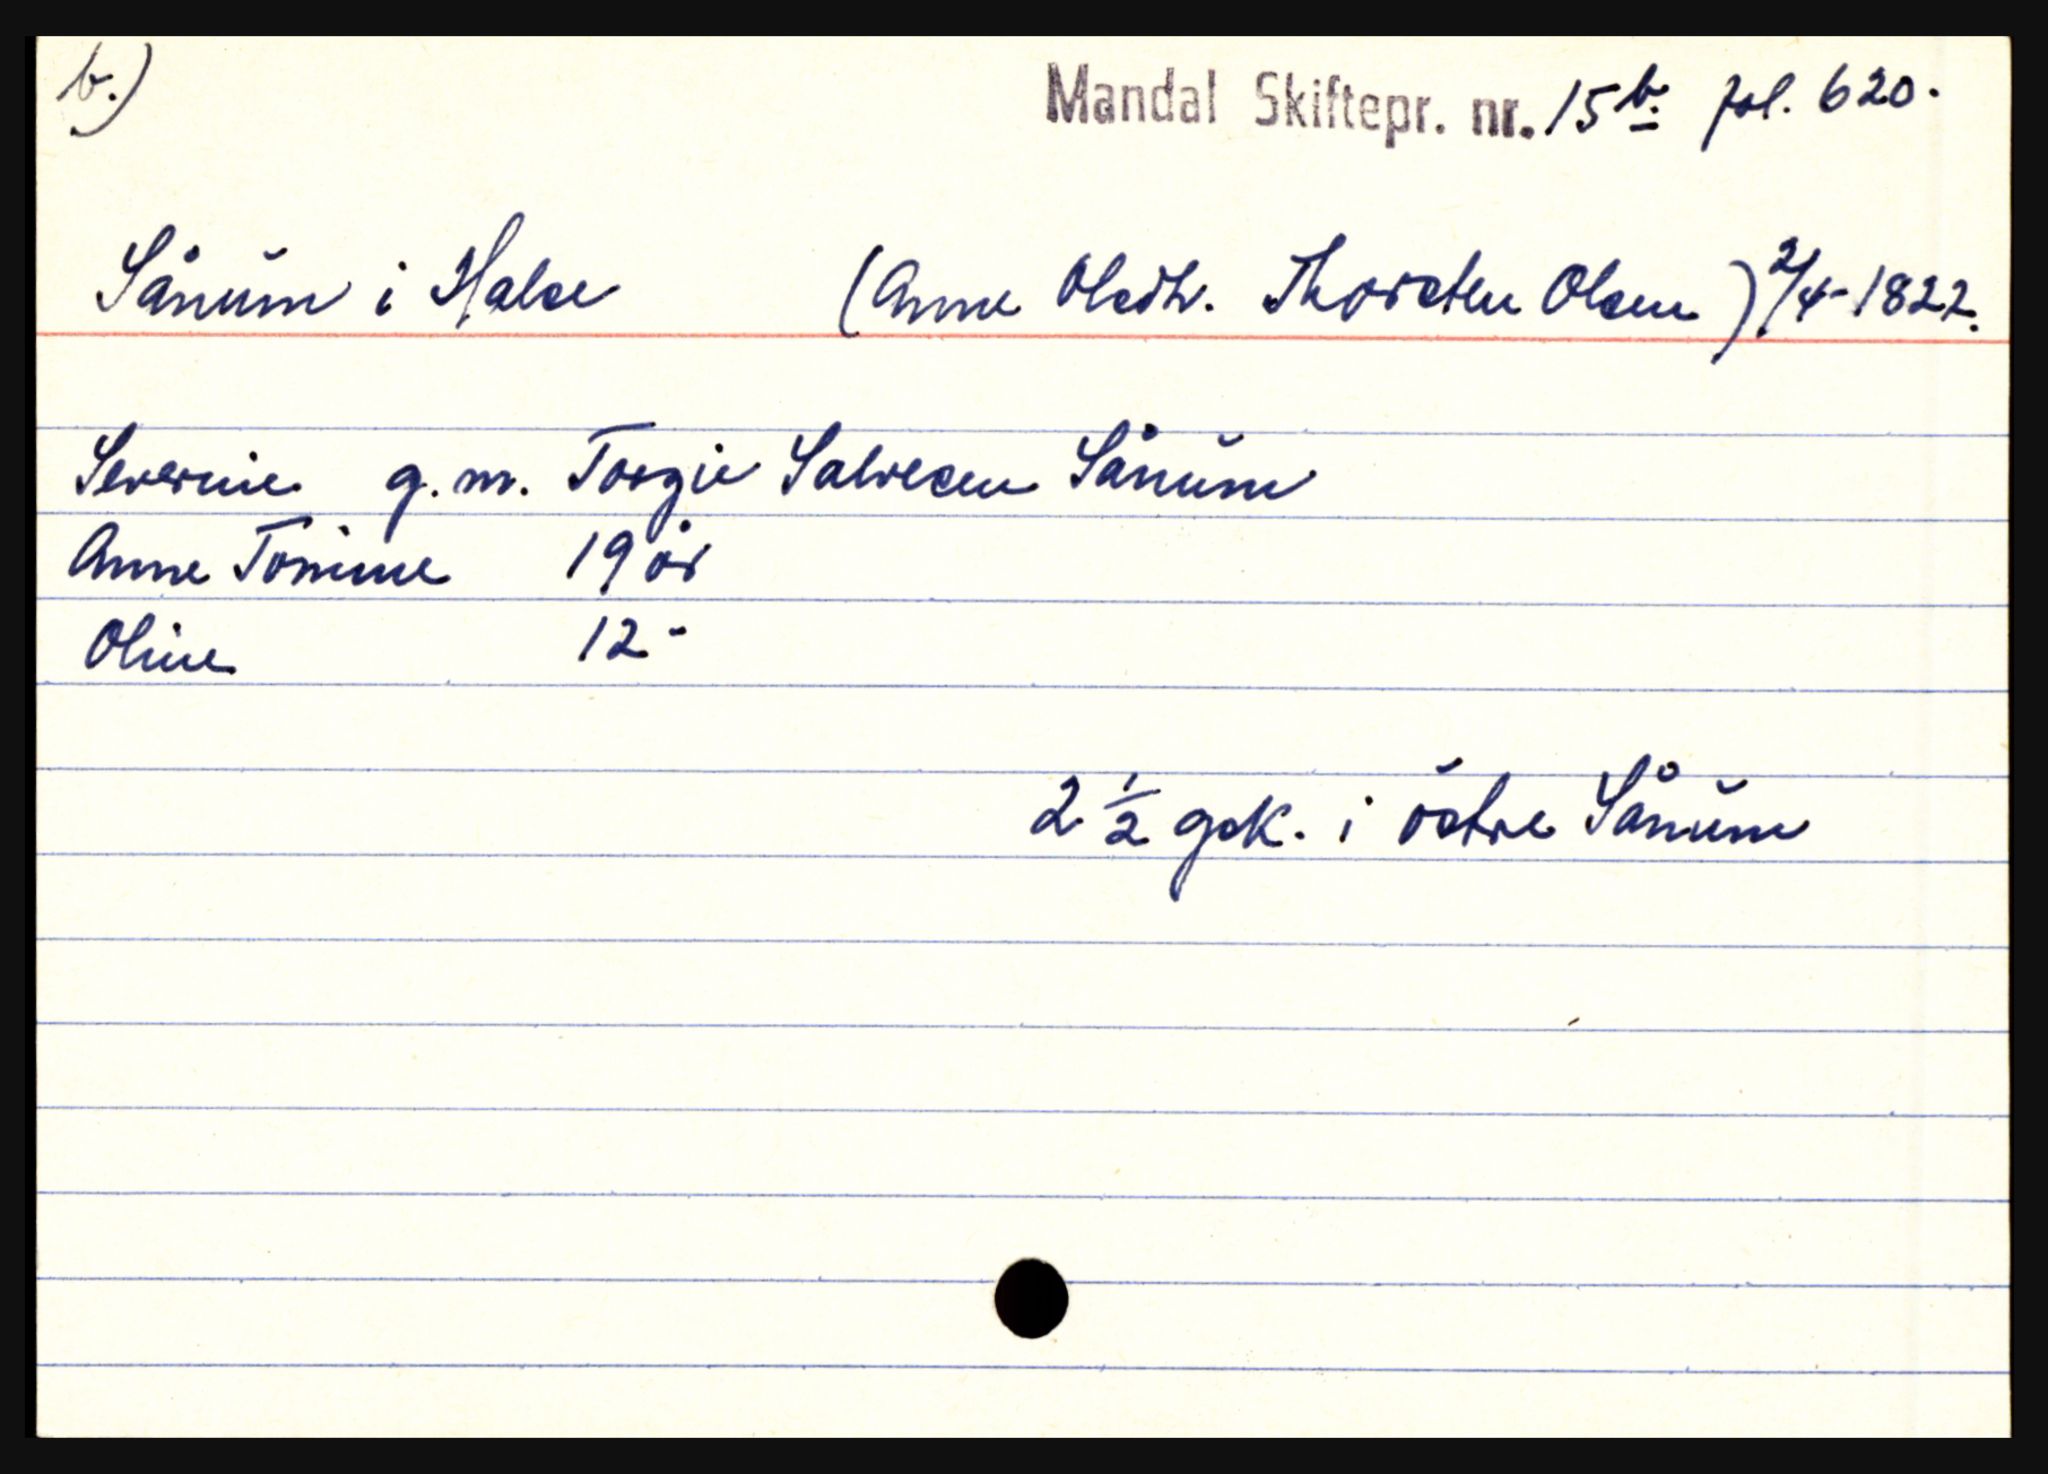 b.)
Mandal Skiftepr. nr. 15 b. fol. 620.
Sånum i Halse (Anne Olsdtr. Thorsten Olsen) 2/4-1822.
Severine g. m. Torgie Salvesen Sånum
Anne Tomine 19 år
Oline 12 -
2 1/2 gsk. i östre Sånum